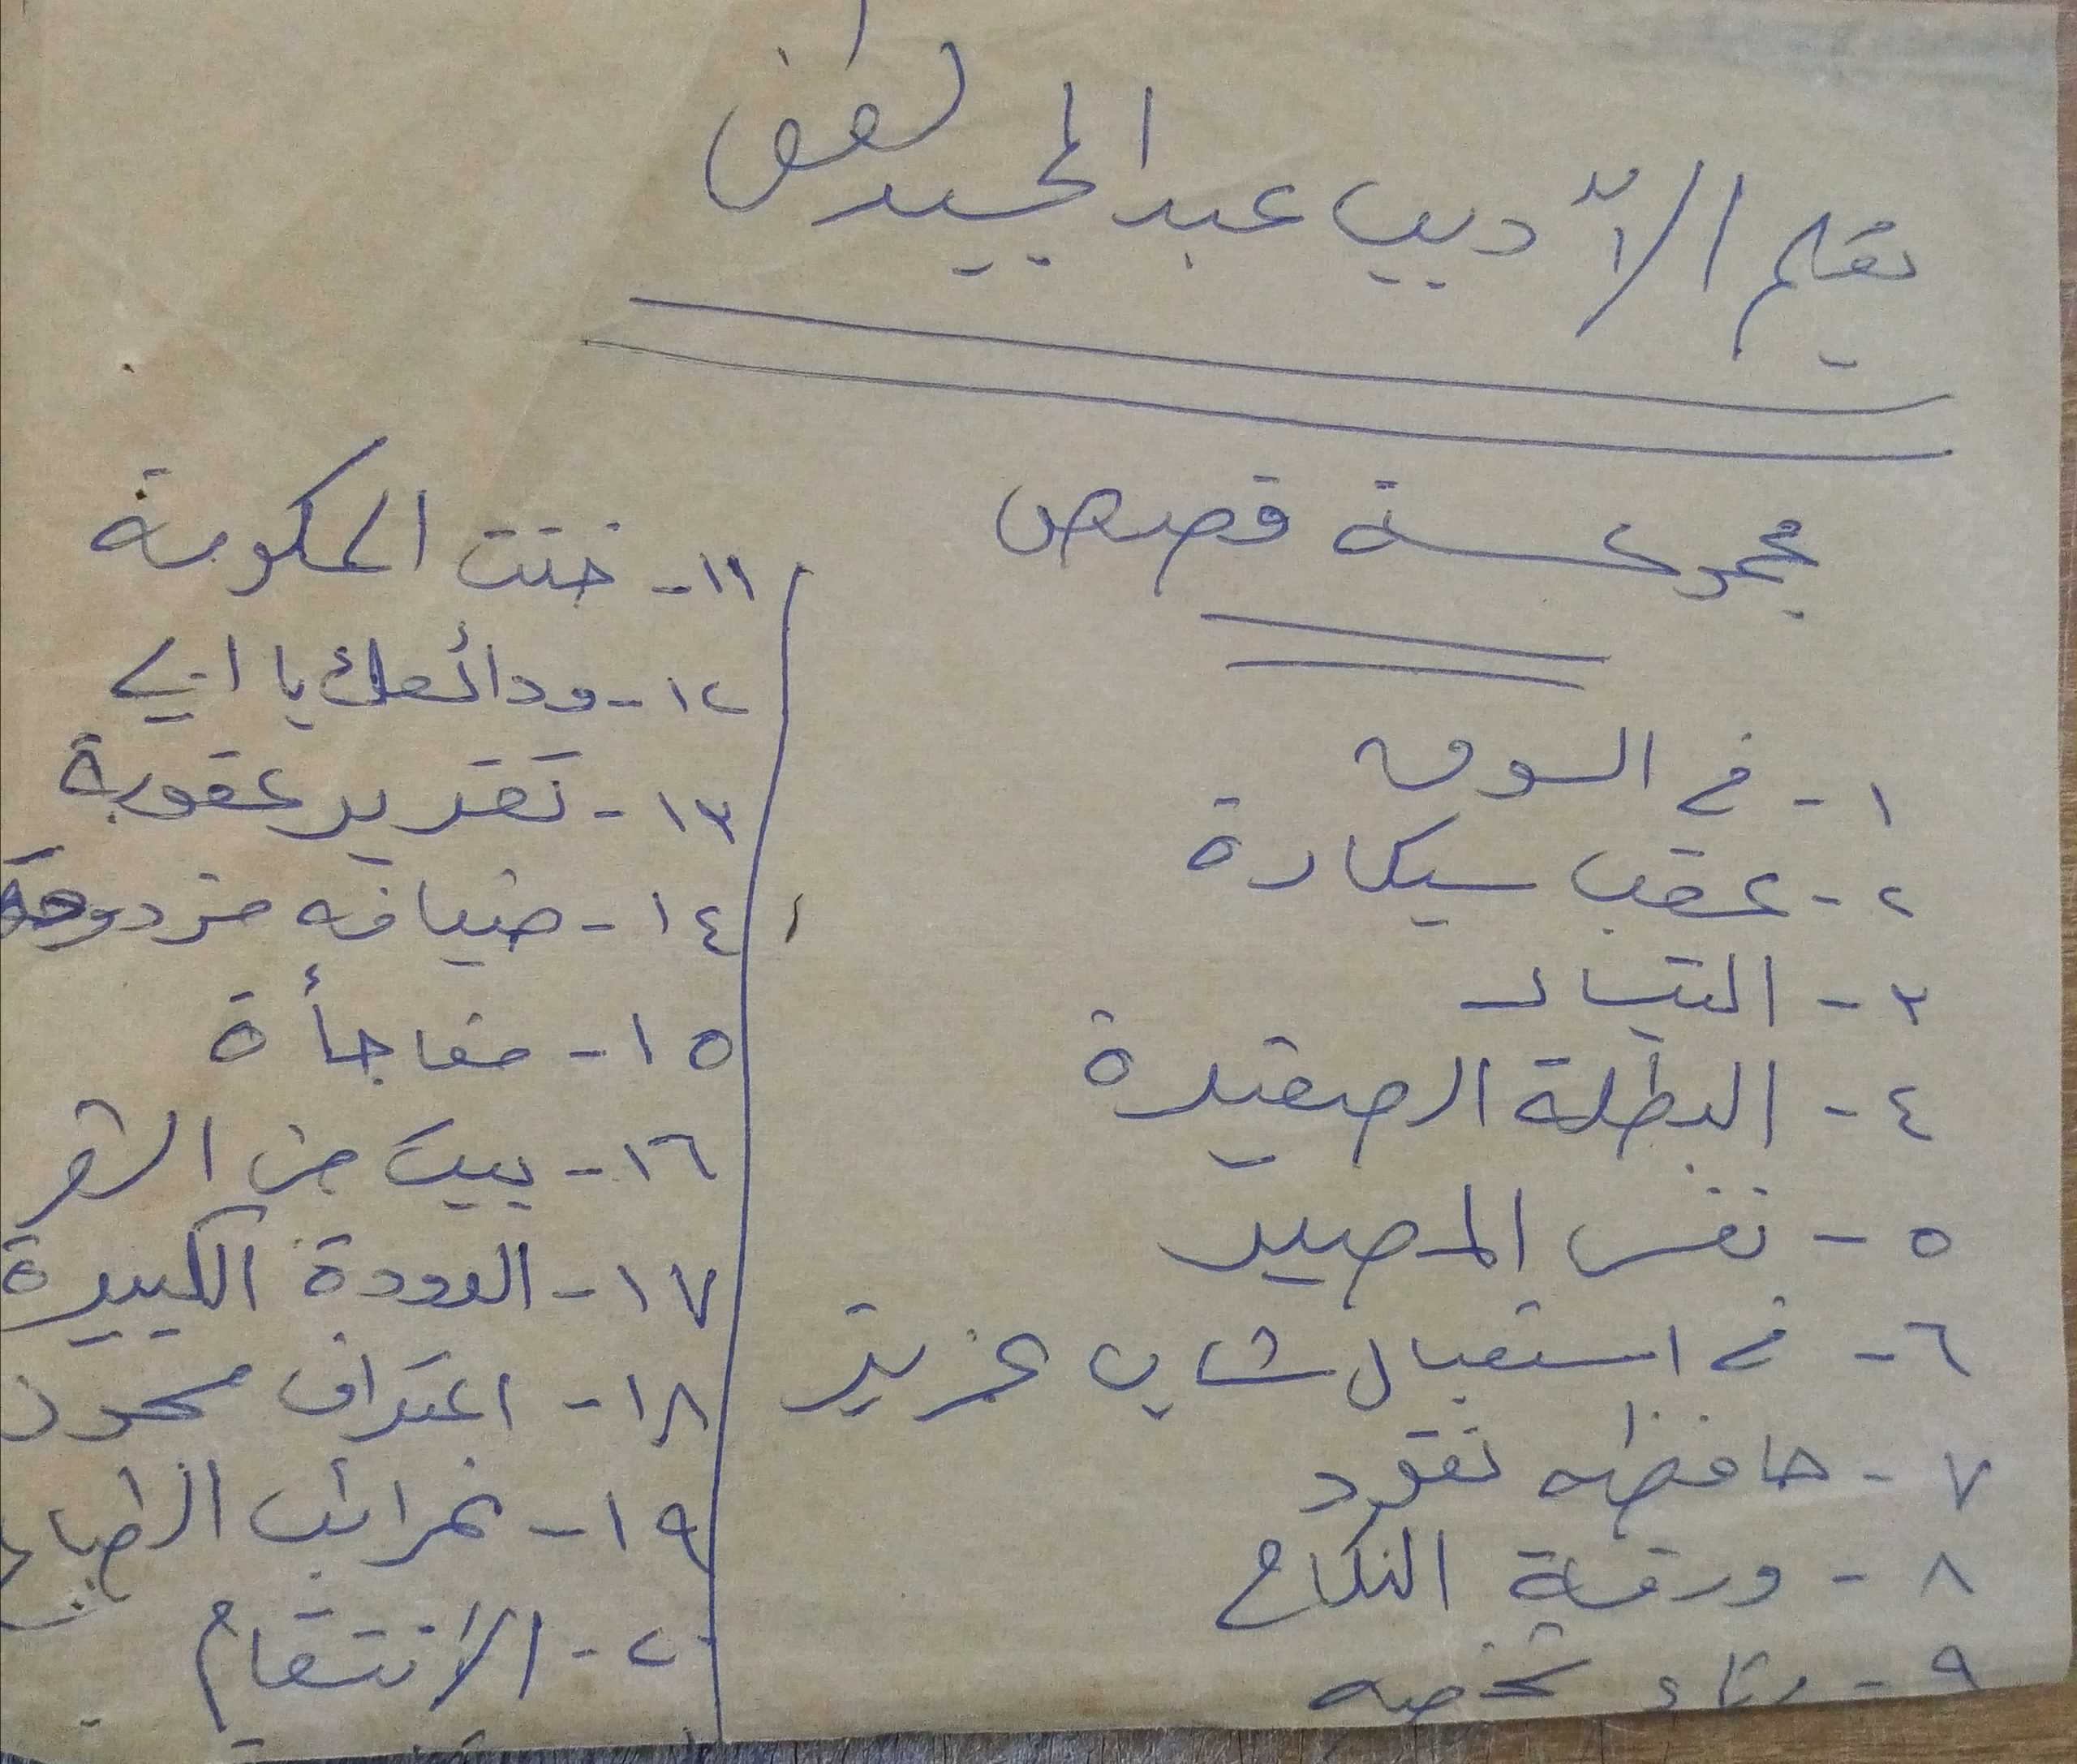 بقلم الأديب عبد المجيد لطفي
مجموعة قصص
١- في السوق
٢- عقب سيكارة
٣- التيار
٤- البطلة الصغيرة
٥- نفس المصير
٦- في استقبال شاي عزيز
٧- حافظه نقود
٨- ورقة النكاح
٩- رثاء
١١- ختت الحكومة
١٢- ودائعك يا
١٣- تقدير عقوبة
١٤- ضيافه مزدوجة
١٥- مفاجأة
١٦- بيت من الشعر
١٧- العودة الكبيرة
١٨- اعتراف
١٩- غرائب الطباع
٢٠- الانتقام